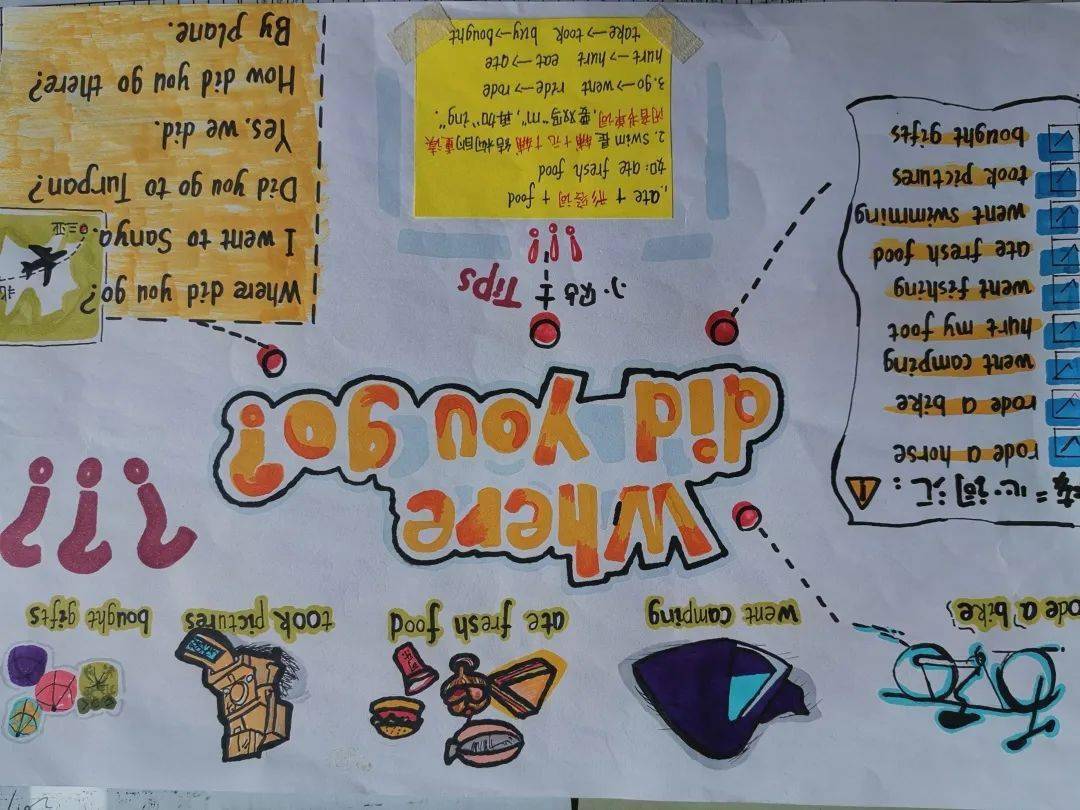 rode a bike
went camping
ate fresh food
took pictures
bought gifts
Where
did you go?
???
词汇:
rode a horse
rode a bike
went camping
hurt my foot
went fishing
ate fresh food
went swimming
took pictures
bought gifts
小贴士 Tips
!!!
1.ate + 形容词 + food
如: ate fresh food
2. swim 是 辅+元+辅 结构的重读
闭音节单词,要双写"m",再加"ing".
3.go→went ride→rode
hurt→hurt eat→ate
take→took buy→bought
Where did you go?
I went to Sanya.
Did you go to Turpan?
Yes, we did.
How did you go there?
By plane.
三亚